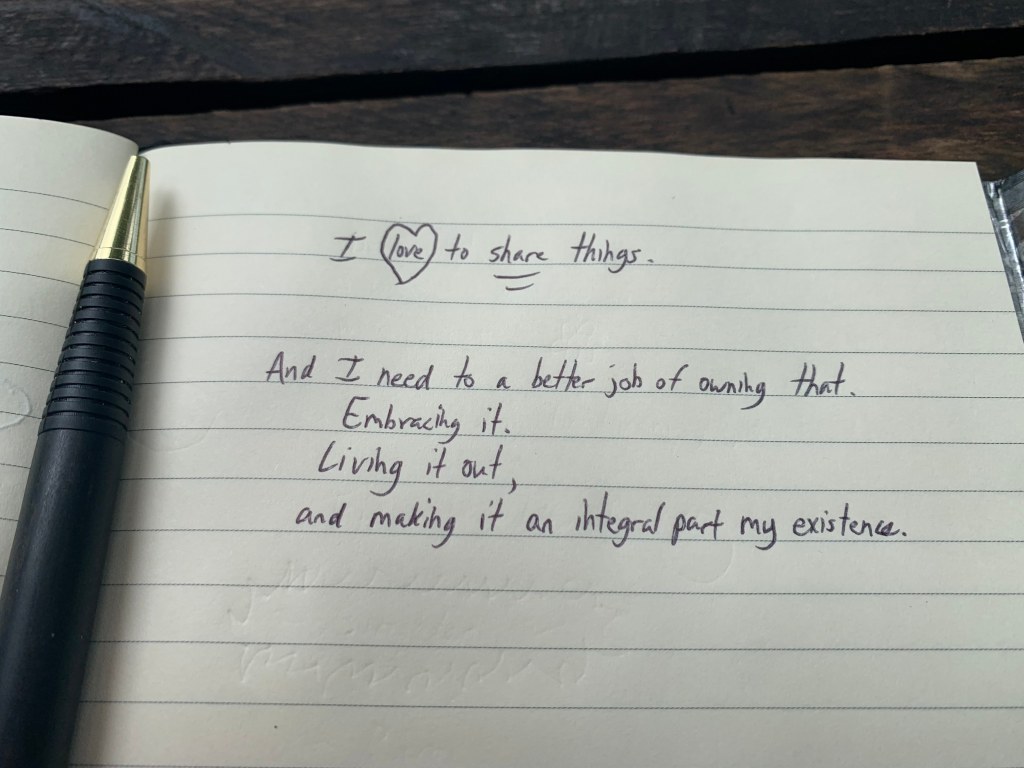 I love to share things.
And I need to a better job of owning that.
Embracing it.
Living it out,
and making it an integral part my existence.